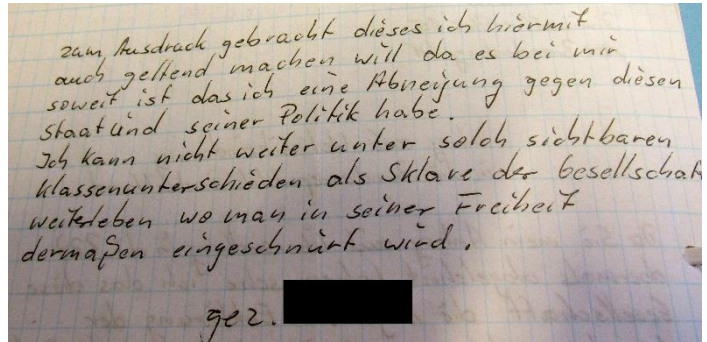 zum Ausdruck gebracht dieses ich hiermit
auch geltend machen will da es bei mir
soweit ist das ich eine Abneigung gegen diesen
Staat und seiner Politik habe.
Ich kann nicht weiter unter solch sichtbaren
Klassenunterschieden als Sklave der Gesellschaft
weiterleben wo man in seiner Freiheit
dermaßen eingeschnürt wird.
gez.